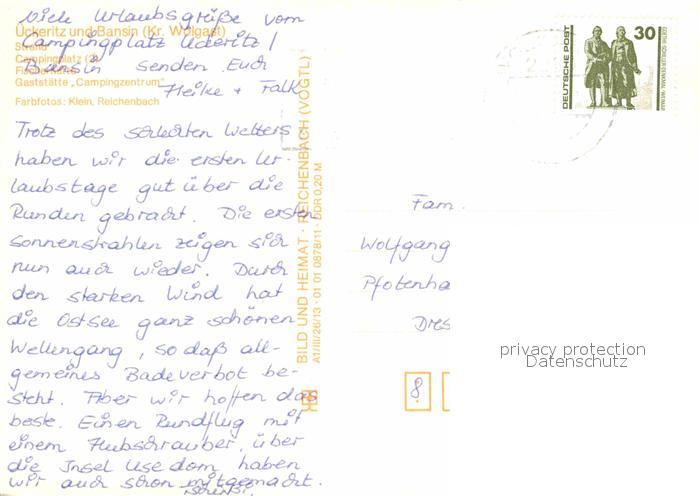 Viele Urlaubsgrüße vom
Campingplatz Ückeritz /
Bansin senden Euch
Heike + Falk
Ückeritz und Bansin (Kr. Wolgast)
Strand
Campingplatz (2)
Gaststätte „Campingzentrum"
Farbfotos: Klein, Reichenbach
Trotz des schlechten Wetters
haben wir die ersten Ur-
laubstage gut über die
Runden gebracht. Die ersten
Sonnenstrahlen zeigen sich
nun auch wieder. Durch
den starken Wind hat
die Ostsee ganz schönen
Wellengang, so daß all-
gemeines Badeverbot be-
steht. Aber wir hoffen das
beste. Einen Rundflug mit
einem Hubschrauber, über
die Insel Usedom, haben
wir auch schon mitgemacht.
BILD UND HEIMAT · REICHENBACH (VOGTL)
A1/III/26/13 · 01 01 0878/11 · DDR 0,20 M
DEUTSCHE POST
30
GOETHE-SCHILLER-DENKMAL, WEIMAR
Fam.
Wolfgang
Pfotenha
Dres
8
privacy protection
Datenschutz